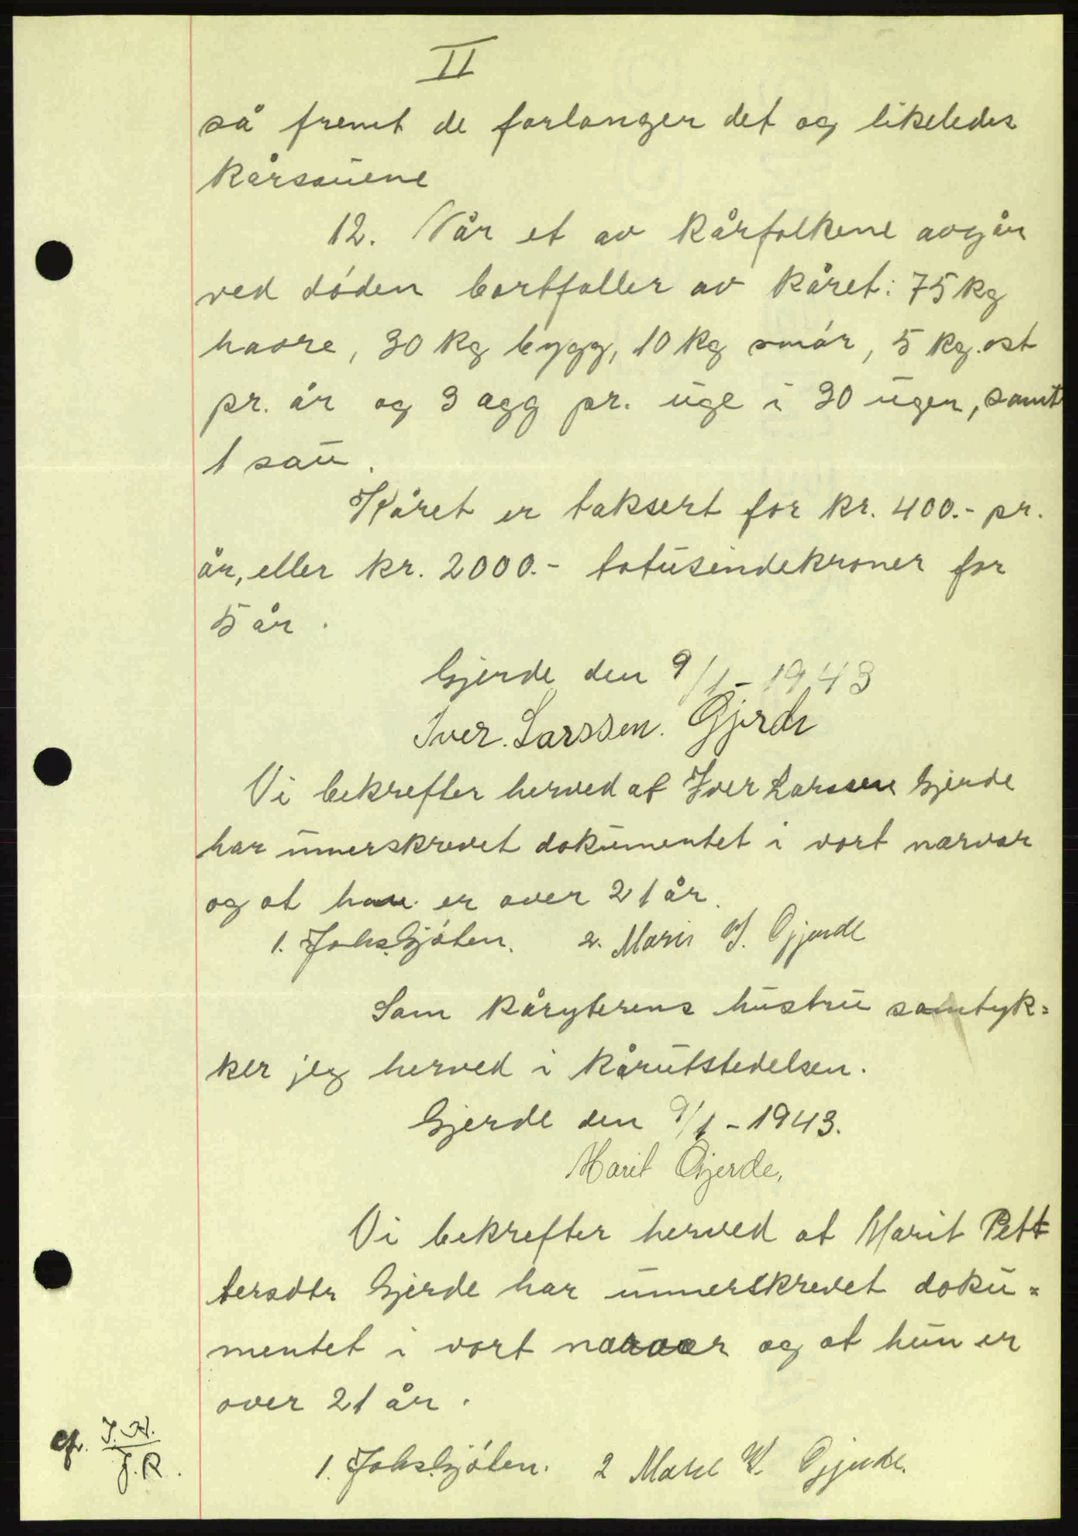 II
så fremt de forlanger det og likeledes
kårsauene
12. Når et av kårfolkene avgår
ved døden bortfaller av kåret: 75 kg
havre, 30 kg bygg, 10 kg smør, 5 kg. ost
pr. år og 3 egg pr. uge i 30 uger, samt
1 sau.
Kåret er taksert for kr. 400.- pr.
år, eller kr. 2000.- totusindekroner for
5 år.
Gjerde den 9/1-1943
Iver. Larssen. Gjerde
Vi bekrefter herved at Iver Larssen Gjerde
har unnerskrevet dokumentet i vort nærvær
og at han er over 21 år.
1. Johs. Gjølen. 2. Gjerde
Som kåryterens hustru samtyk=
ker jeg herved i kårutstedelsen.
Gjerde den 9/1-1943.
Marit Gjerde.
Vi bekrefter herved at Marit Pett
tersdtr Gjerde har unnerskrevet doku=
mentet i vort nærvær og at hun er
over 21 år.
cfr. J.H.
J.R.
1. Johs. Gjølen. 2 Gjerde.